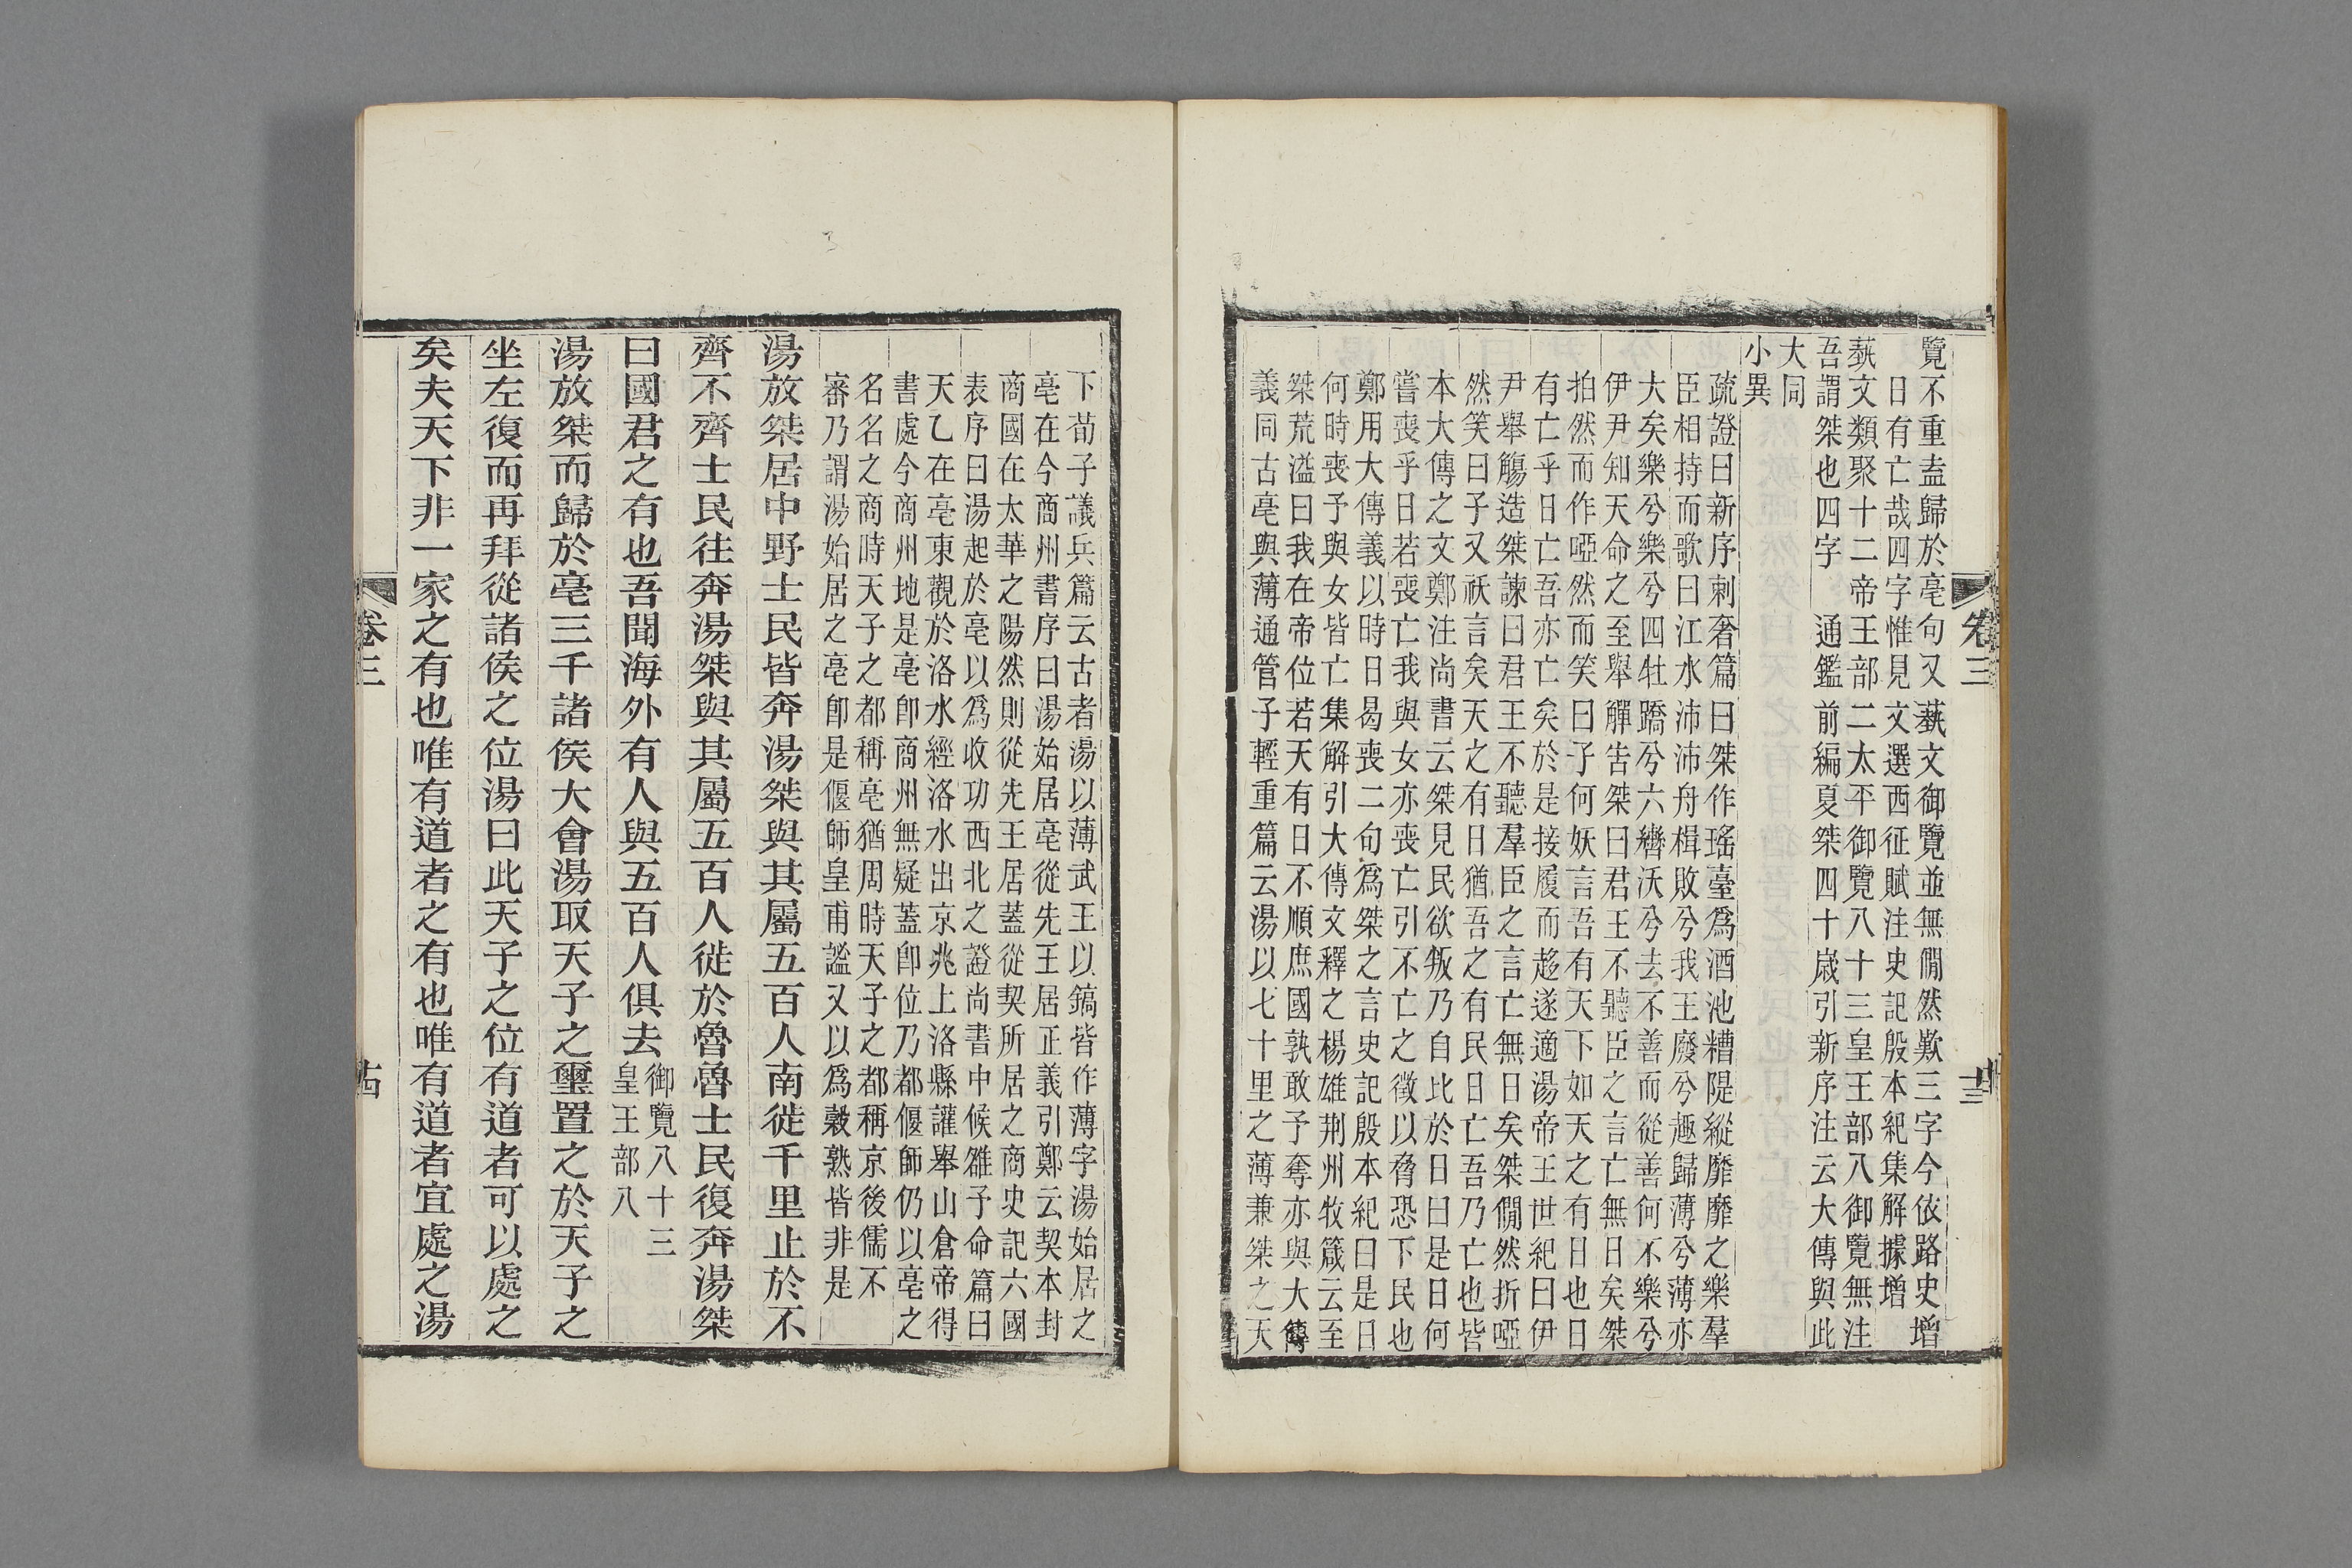 覽不重盍歸於亳句又蓺文御覽並無僩然歎三字今依路史增
日有亡哉四字惟見文選西征賦注史記殷本紀集解據增
蓺文類聚十二帝王部二太平御覽八十三皇王部八御覽無注
吾謂桀也四字　通鑑前編夏桀四十歲引新序注云大傳與此
大同
小異
疏證曰新序刺奢篇曰桀作瑤臺爲酒池糟隄縱靡靡之樂羣
臣相持而歌曰江水沛沛舟楫敗兮我王廢兮趣歸薄兮薄亦
大矣樂兮樂兮四牡蹻兮六轡沃兮去不善而從善何不樂兮
伊尹知天命之至舉觶告桀曰君王不聽臣之言亡無日矣桀
拍然而作啞然而笑曰子何妖言吾有天下如天之有日也日
有亡乎日亡吾亦亡矣於是接履而趍遂適湯帝王世紀曰伊
尹舉觴造桀諫曰君王不聽羣臣之言亡無日矣桀僩然折啞
然笑曰子又祅言矣天之有日猶吾之有民日亡吾乃亡也皆
本大傳之文鄭注尚書云桀見民欲叛乃自比於日曰是日何
嘗喪乎日若喪亡我與女亦喪亡引不亡之徵以脅恐下民也
鄭用大傳義以時日曷喪二句爲桀之言史記殷本紀曰是日
何時喪予與女皆亡集解引大傳文釋之楊雄荆州牧箴云至
桀荒溢曰我在帝位若天有日不順庶國孰敢予奪亦與大傳
義同古亳與薄通管子輕重篇云湯以七十里之薄兼桀之天
卷三
十三
下荀子議兵篇云古者湯以薄武王以鎬皆作薄字湯始居之
亳在今商州書序曰湯始居亳從先王居正義引鄭云契本封
商國在太華之陽然則從先王居蓋從契所居之商史記六國
表序曰湯起於亳以爲收功西北之證尚書中候雒予命篇曰
天乙在亳東觀於洛水經洛水出京兆上洛縣讙舉山倉帝得
書處今商州地是亳卽商州無疑蓋卽位乃都偃師仍以亳之
名名之商時天子之都稱亳猶周時天子之都稱京後儒不
審乃謂湯始居之亳卽是偃師皇甫謐又以爲穀熟皆非是
湯放桀居中野士民皆奔湯桀與其屬五百人南徙千里止於不
齊不齊士民往奔湯桀與其屬五百人徙於魯魯士民復奔湯桀
曰國君之有也吾聞海外有人與五百人俱去御覽八十三
皇王部八
湯放桀而歸於亳三千諸侯大會湯取天子之璽置之於天子之
坐左復而再拜從諸侯之位湯曰此天子之位有道者可以處之
矣夫天下非一家之有也唯有道者之有也唯有道者宜處之湯
卷三
十四